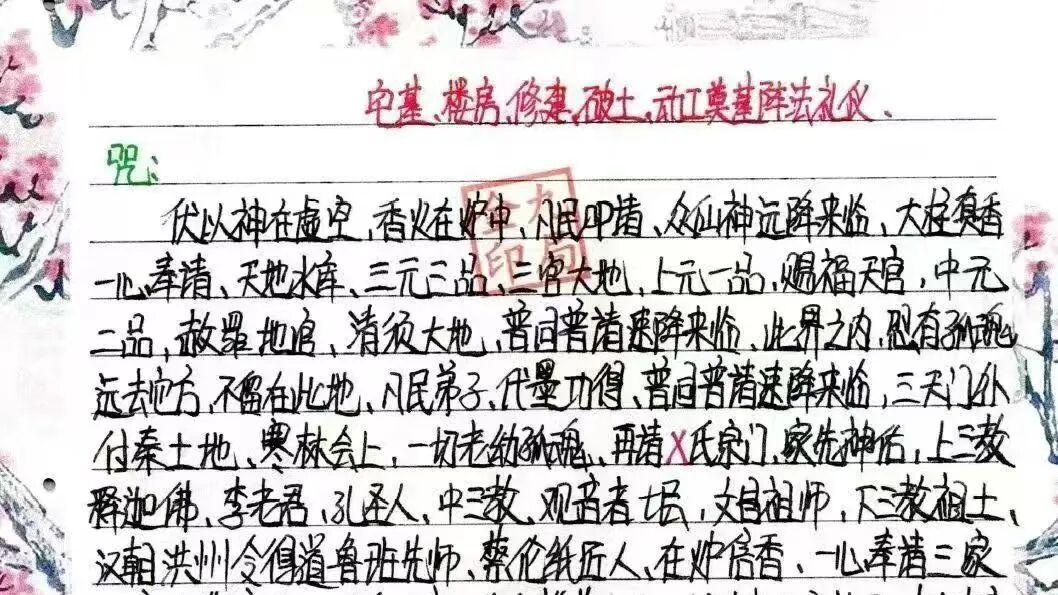 宅基、楼房、修建、破土、动工奠基阵法礼仪、
咒:
伏以神在虚空、香火在炉中、凡民叩请、众仙神远降来临、大柱真香
一心奉请、天地水库、三元三品、三官大地、上元一品、赐福天官、中元
二品、赦罪地官、清须大地、普同普请速降来临、此界之内、恐有孤魂
远去他方、不留在此地、凡民弟子、代墨功得、普同普请速降来临、三天门外
付秦土地、寒林会上、一切老幼孤魂、再请X氏宗门、家先神佑、上三教
释迦佛、李老君、孔圣人、中三教、观音者、文昌祖师、下三教祖土、
汉朝洪州令得道鲁班先师、蔡伦纸匠人、在炉信香、一心奉请三家